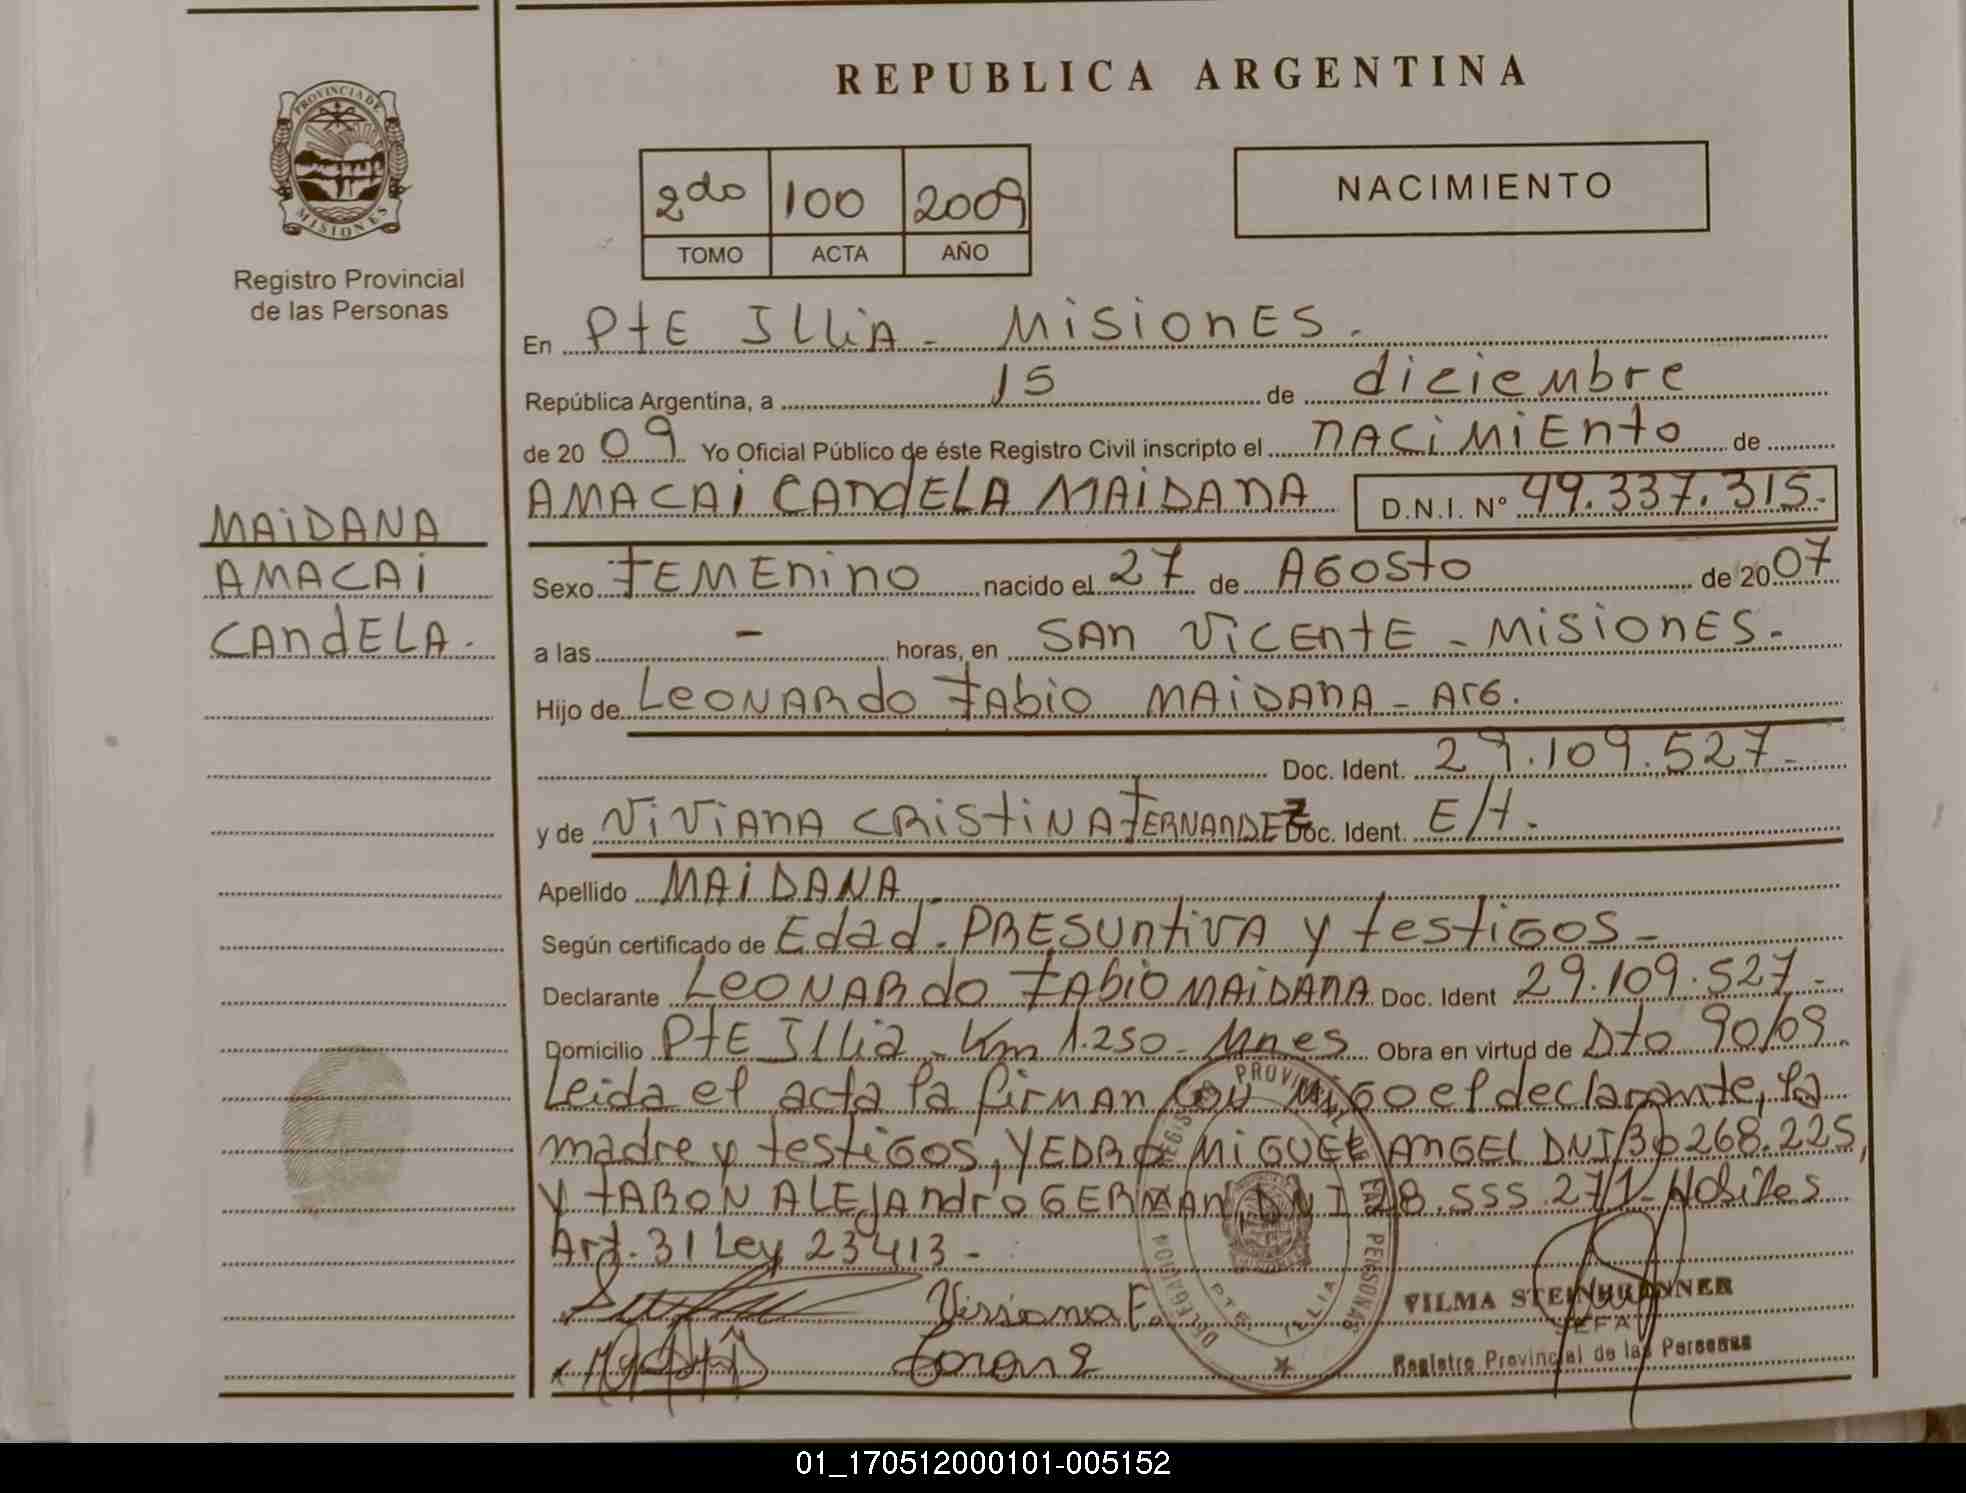 REPUBLICA ARGENTINA
PROVINCIA DE
MISIONES
Registro Provincial
de las Personas
2do 100 2009
TOMO ACTA AÑO
NACIMIENTO
En PtE Illia - Misiones.
República Argentina, a 15 de diciembre
de 2009 Yo Oficial Público de éste Registro Civil inscripto el nacimiento de
AMACAI CANDELA MAIDANA D.N.I. N° 49.337.315.-
MAIDANA
AMACAI
CANDELA.-
Sexo FEMENINO nacido el 27 de AGOSTO de 2007
a las - horas, en SAN VICENTE - MISIONES.-
Hijo de LEONARDO FABIO MAIDANA - ARG.
Doc. Ident. 29.109.527.-
y de VIVIANA CRISTINA FERNANDEZ Doc. Ident. E/t.
Apellido MAIDANA
Según certificado de Edad PRESUNTIVA y testigos -
Declarante LEONARDO FABIO MAIDANA Doc. Ident 29.109.527.-
Domicilio PtE Illia - Km 1.250 - Mnes Obra en virtud de Dto 90/09.
Leida el acta la firman con migo el declarante, la
madre y testigos, YEDRO MIGUEL ANGEL DNI 30268.225,
y TABON ALEJANDRO GERMAN, DNI 28.555.271-
Art. 31 Ley 23413 -
Viviana F.
REGISTRO PROVINCIAL DE LAS PERSONAS
DELEGACION
PTE. ILLIA
VILMA STEINBRENNER
JEFA
Registro Provincial de las Personas
01_170512000101-005152